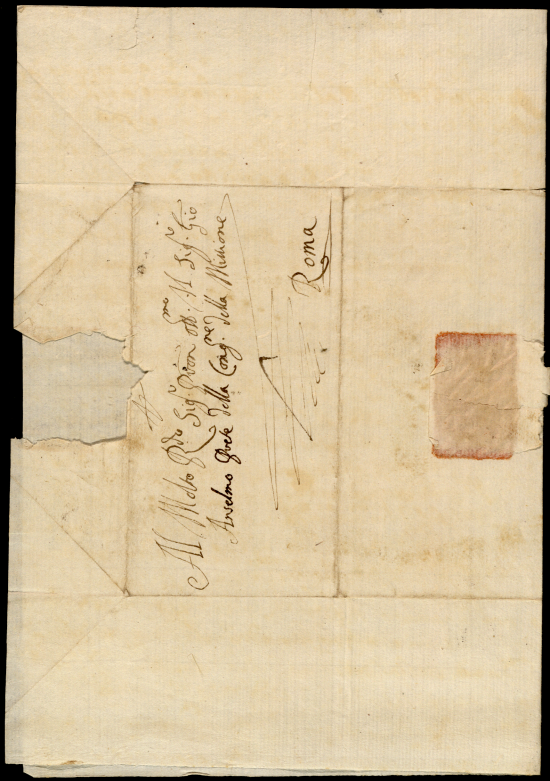 Al Molto R.do Sig.r Pron oss.mo Il Sig.r Gio
Anselmo Prete della Cong.ne della Missione
Roma